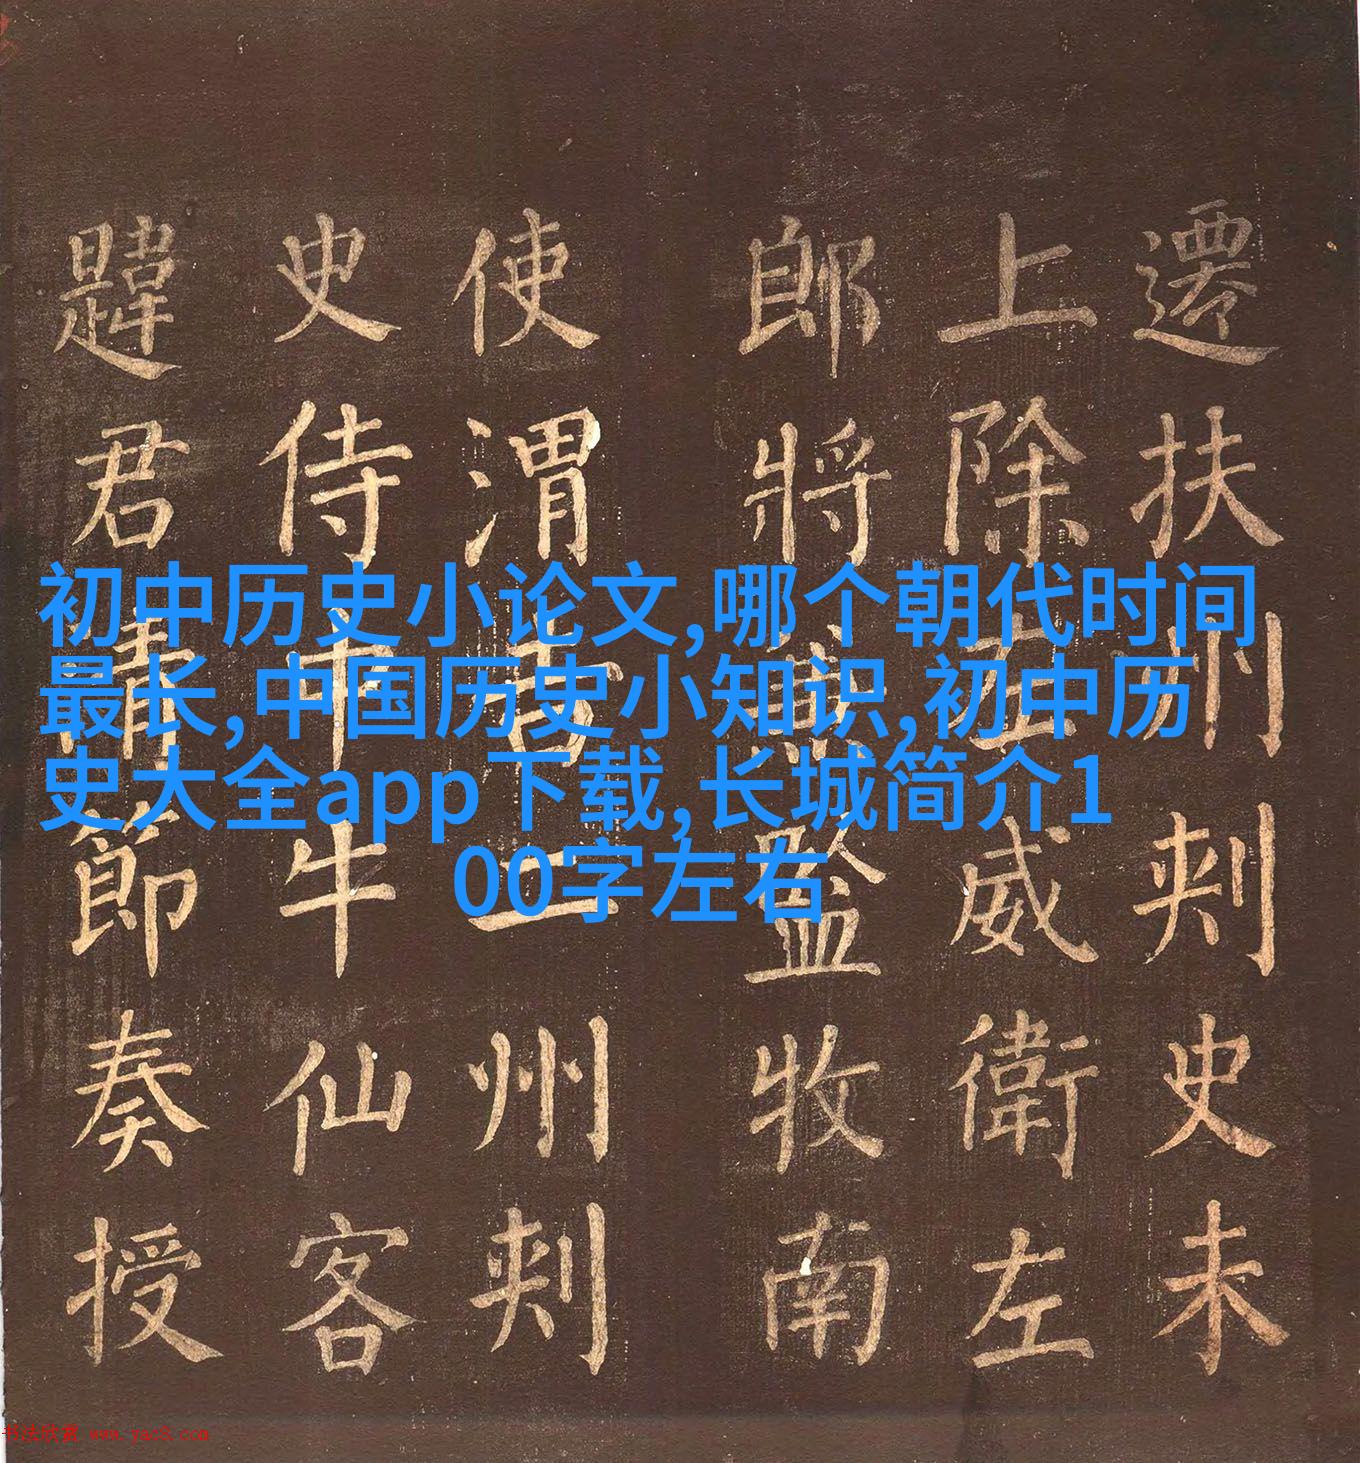 初中历史小论文,哪个朝代时间
最长,中国历史小知识,初中历
史大全app下载,长城简介1
00字左右
遷扶州刾史未
上除左威衛左
郎將兼監牧南
使渭二州刾
史侍中牛仙客
韙君清節奏授
书法欣赏 www.yac8.com